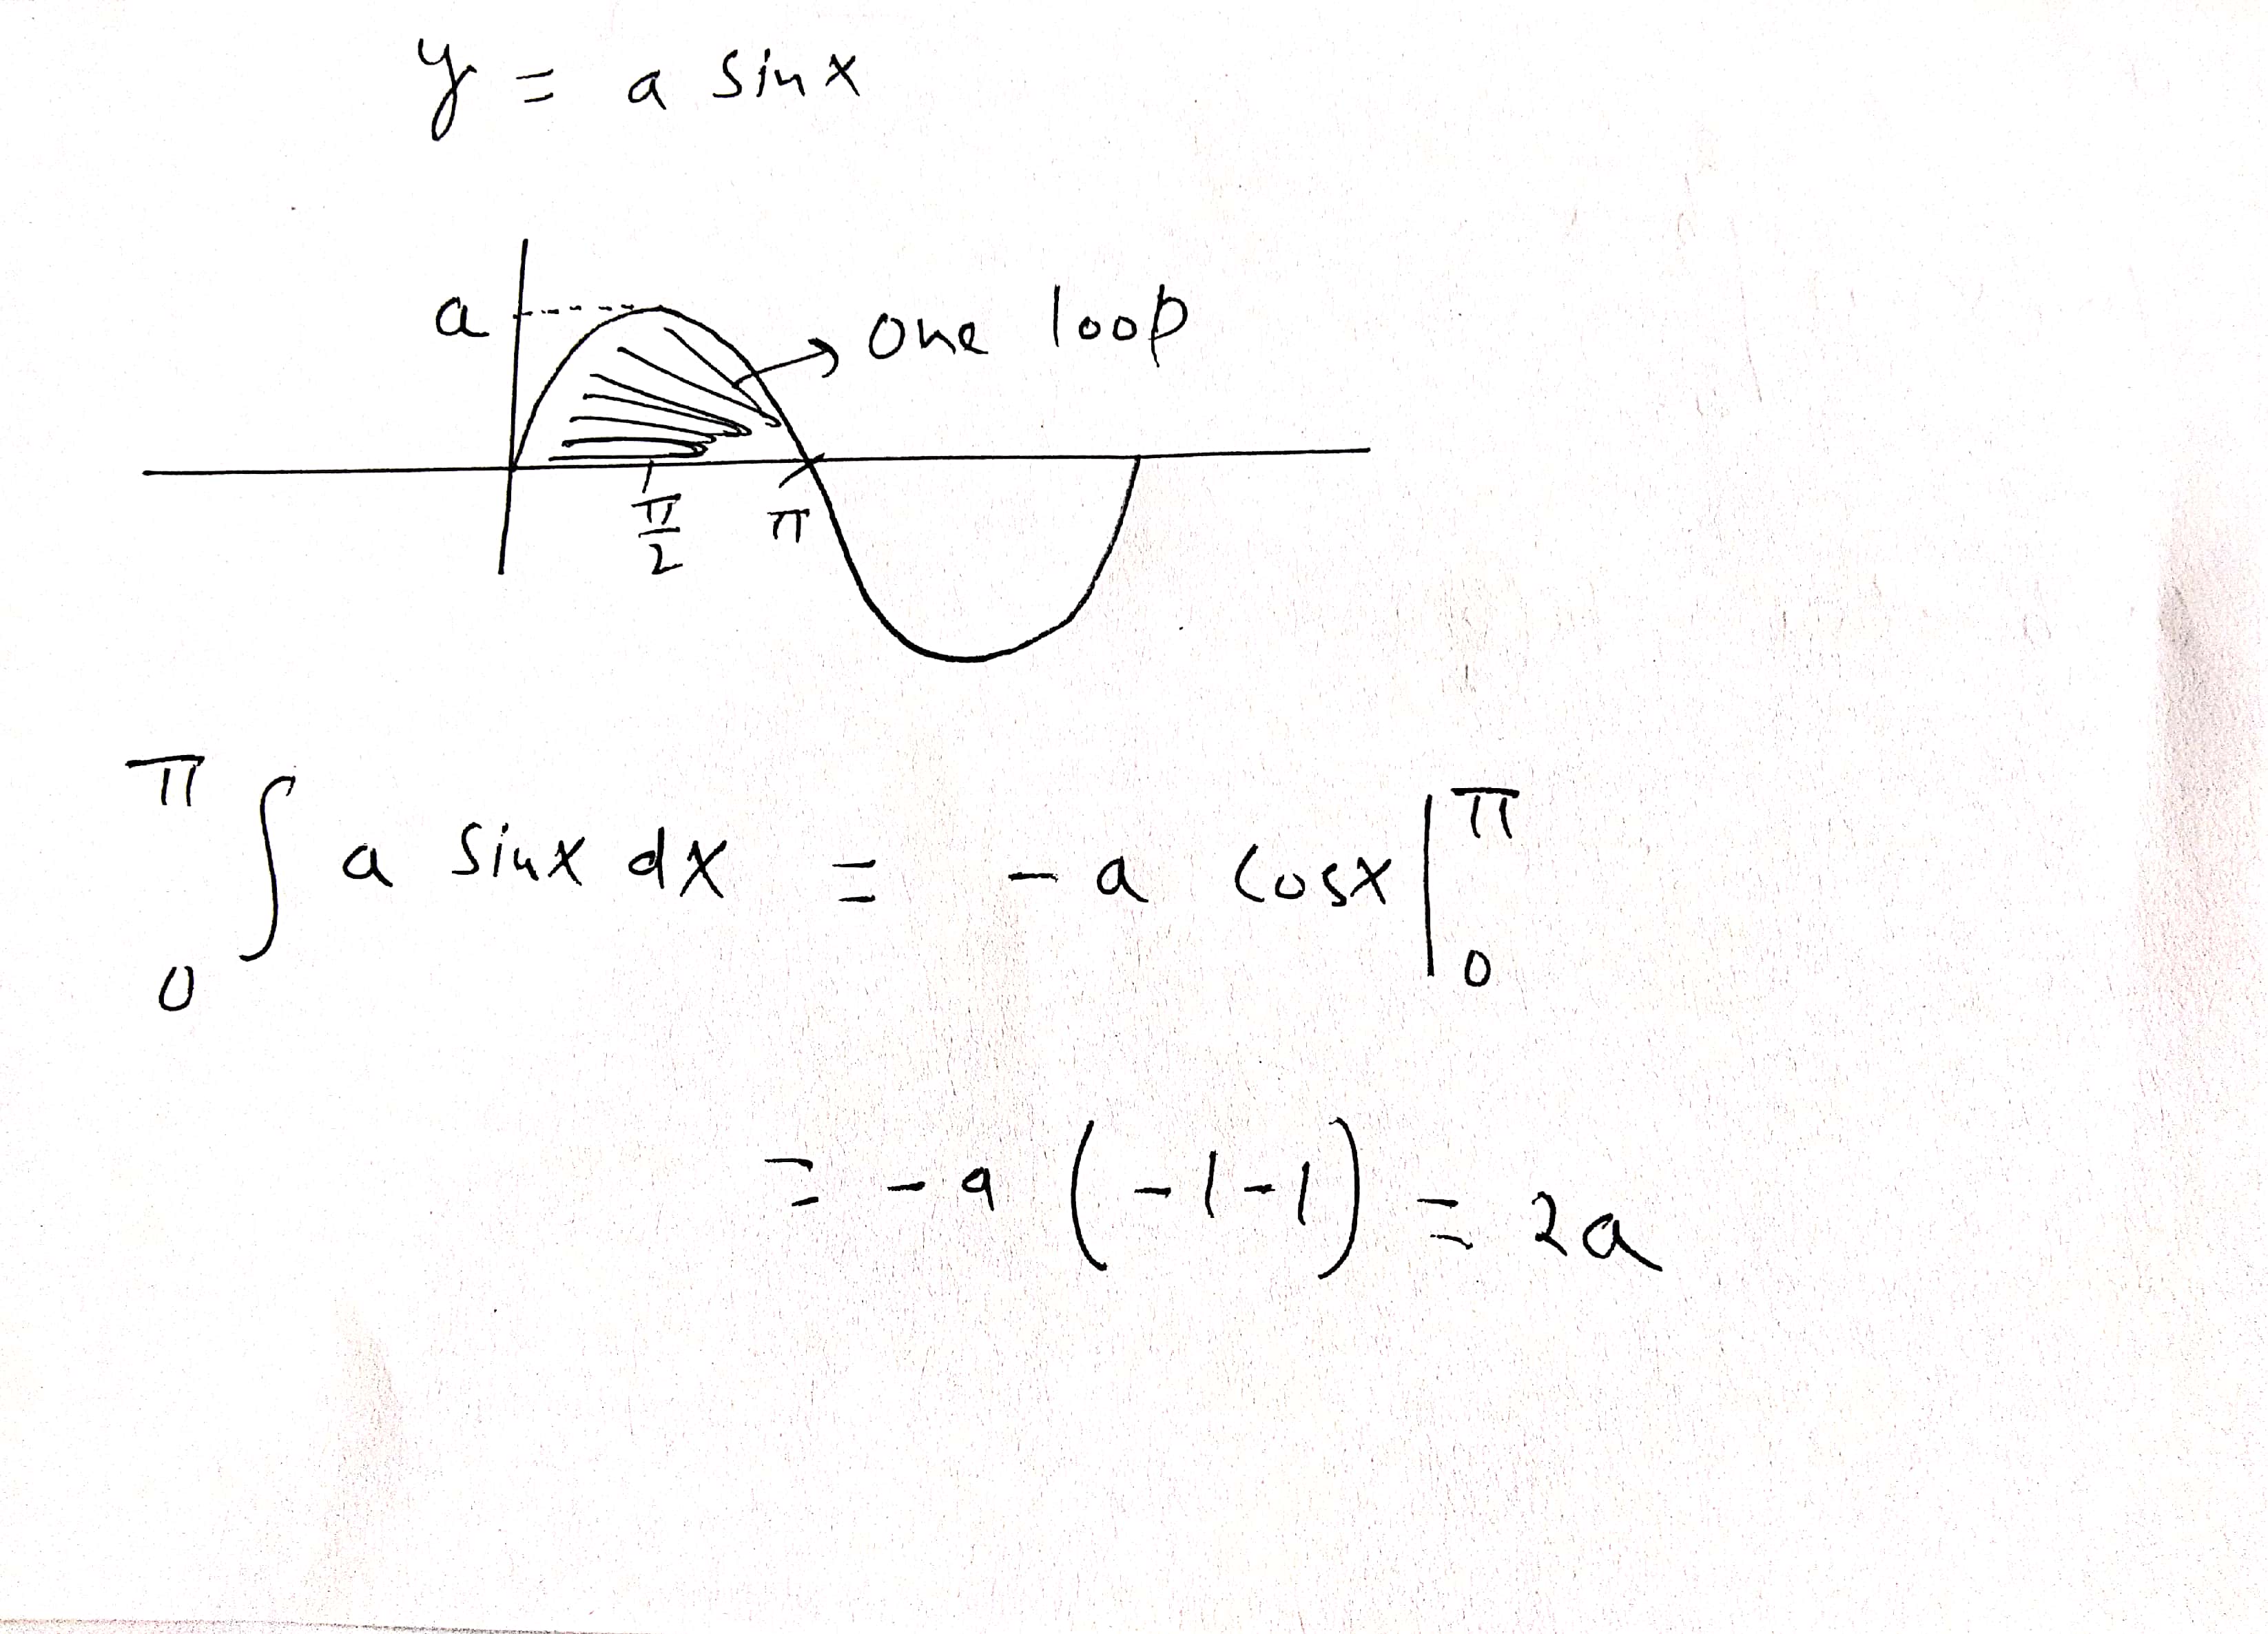 y = a sinx
a
one loop
π/2
π
π∫0 a sinx dx = - a cosx |π 0
= - a (-1-1) = 2a